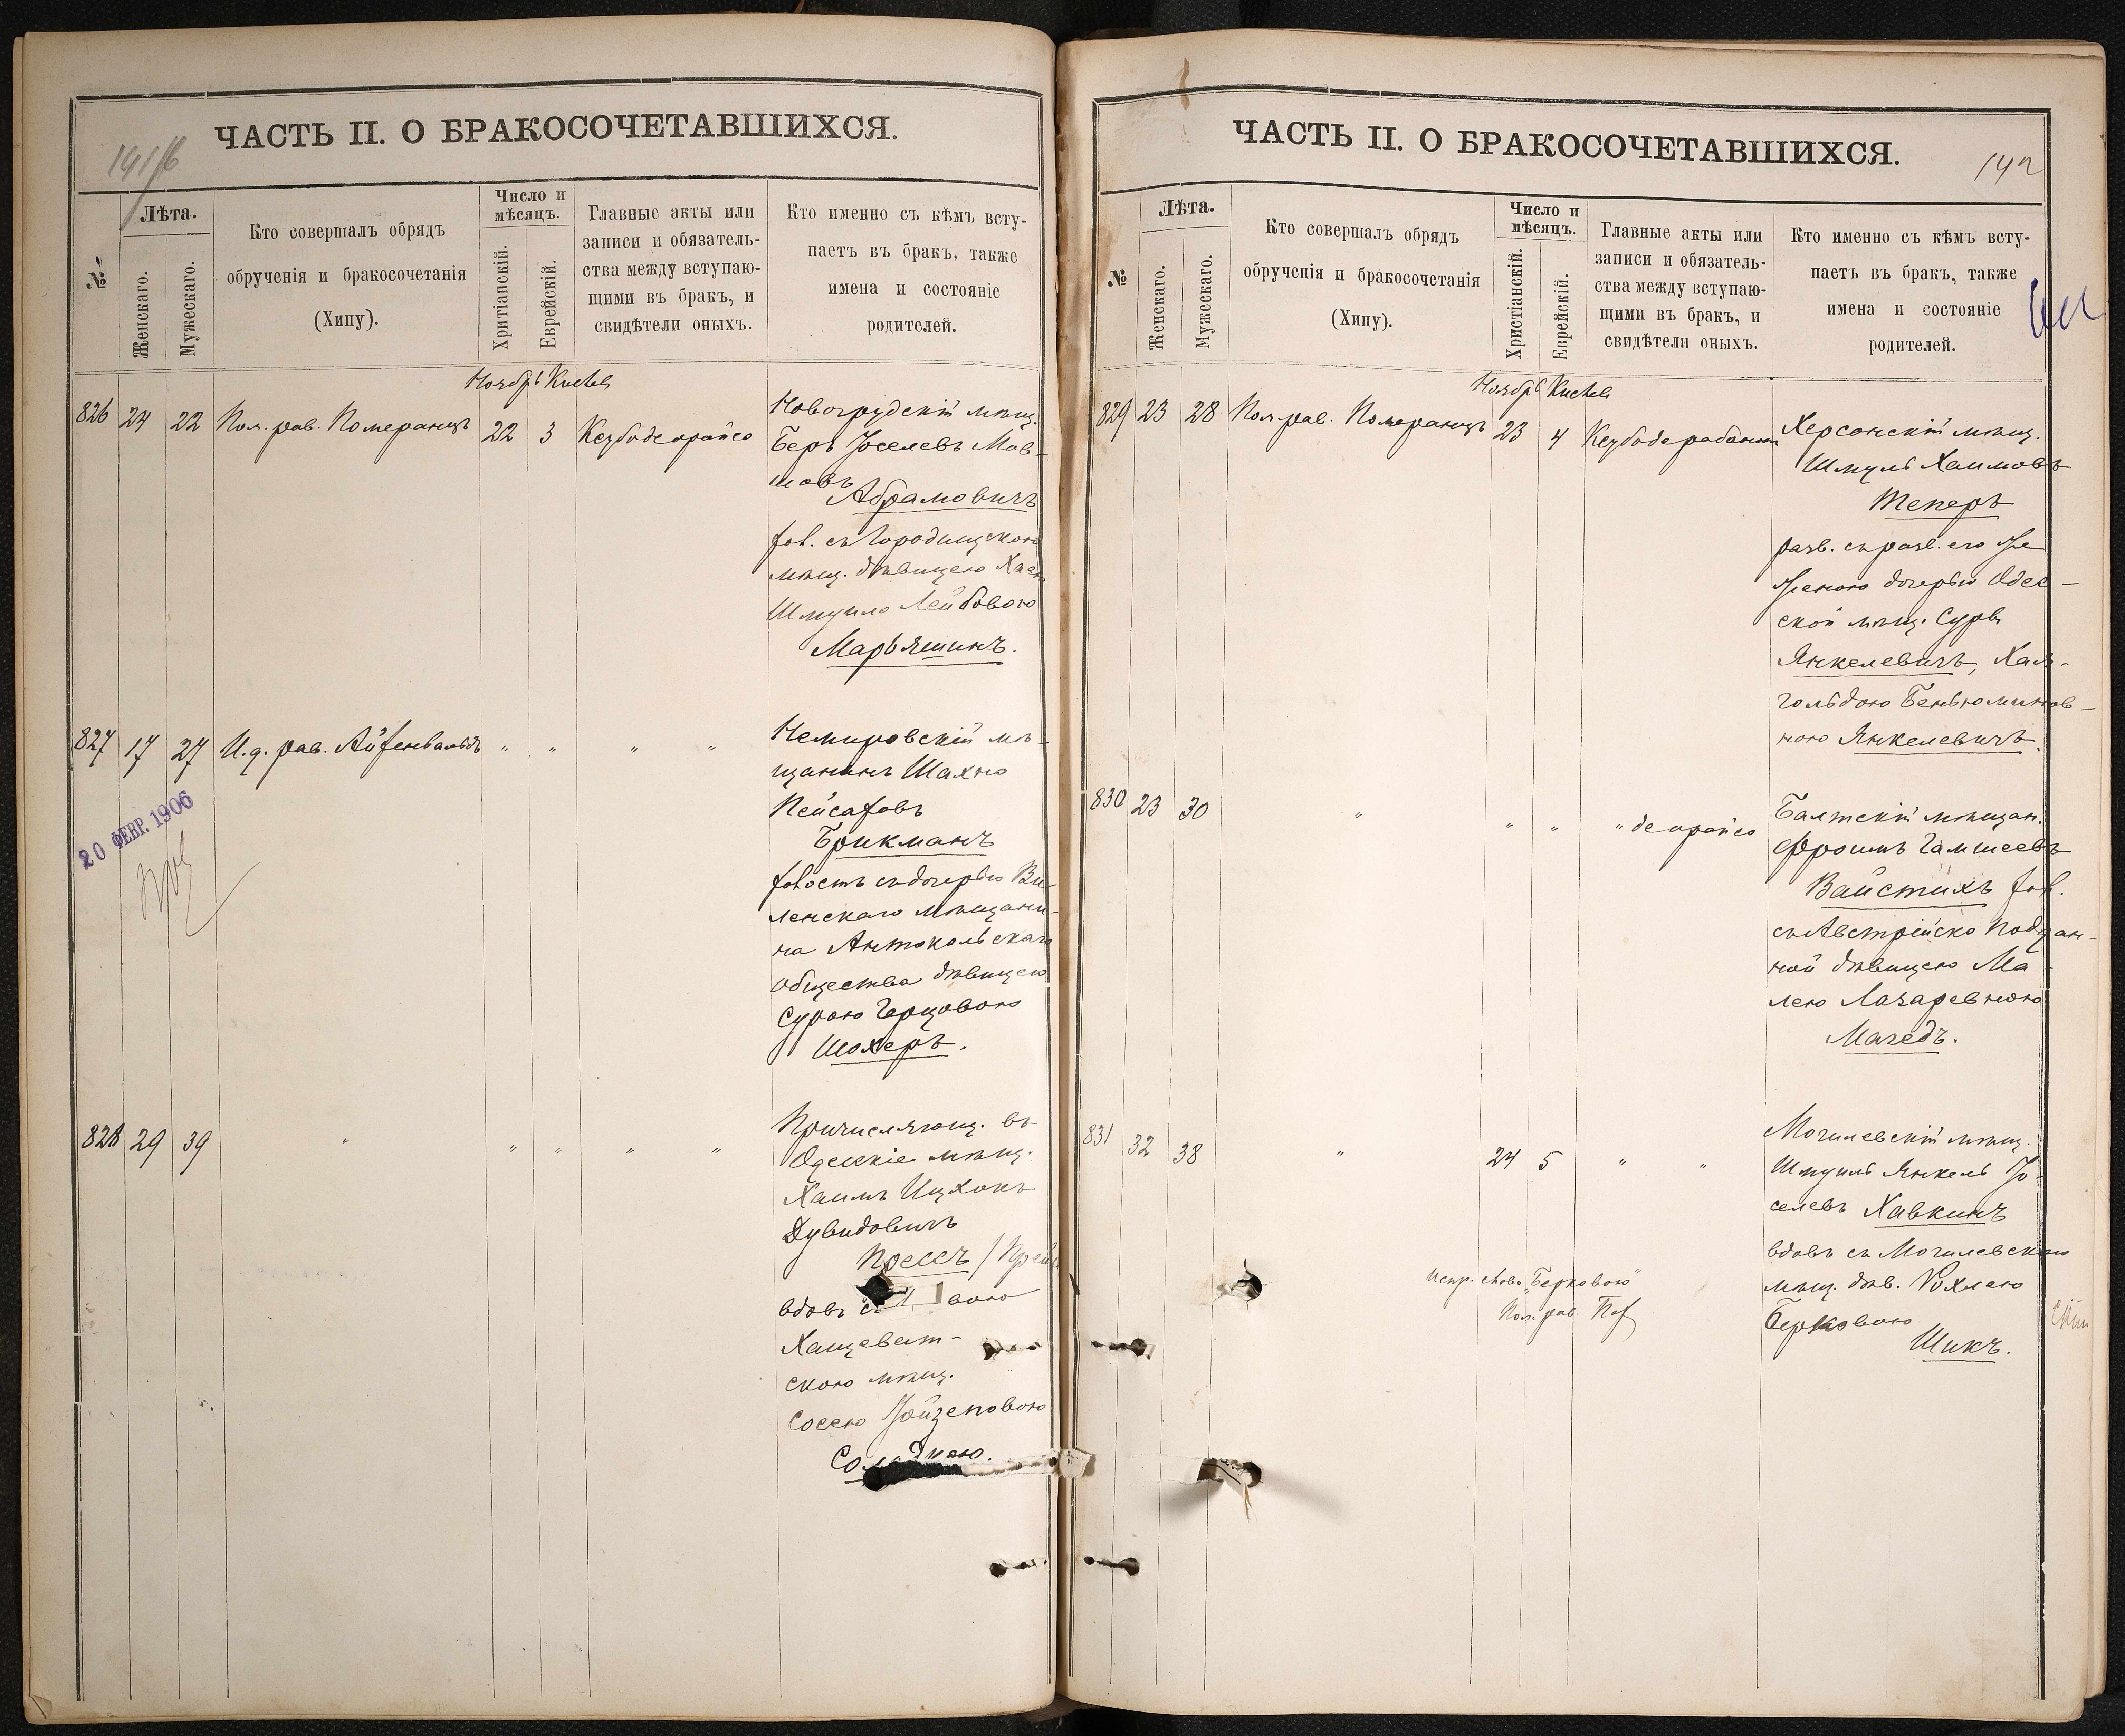 ЧАСТЬ II. О БРАКОСОЧЕТАВШИХСЯ.
№
Лѣта.
Женскаго.
Мужескаго.
Кто совершалъ обрядъ
обрученія и бракосочетанія
(Хипу).
Число и
мѣсяцъ.
Хритіанскій.
Еврейскій.
Главные акты или
записи и обязатель-
ства между вступаю-
щими въ бракъ, и
свидѣтели оныхъ.
Кто именно съ кѣмъ всту-
паетъ въ бракъ, также
имена и состояніе
родителей.
Ноябрь
826 24 22 Пом. рав. Померанцъ 22 3 Кезубо деорайсо
Новогрудскій мѣщ.
Беръ Іоселевъ Мов-
шовъ
Абрамовичъ
хол. съ Городищскою
мѣщ. дѣвицею Хаею
Шмуило Лейбовою
Марьяшинъ.
827 17 27 И. д. рав. Айзенвальдъ " " " "
Немировскій мѣ-
щанинъ Шахно
Пейсаховъ
Брикманъ
холостъ съ дочерью Ви-
ленскаго мѣщани-
на Антокольскаго
общества дѣвицею
Сурою Герцовою
Шохеръ.
20 ФЕВР. 1906
828 29 39 " " " " "
Причисляющ. въ
Одесскіе мѣщ.
Хаимъ Ицхокъ
Дувидовичъ
Прессъ
вдовъ съ
Хащеват-
скою мѣщ.
Соснею
ЧАСТЬ II. О БРАКОСОЧЕТАВШИХСЯ.
142
№
Лѣта.
Женскаго.
Мужескаго.
Кто совершалъ обрядъ
обрученія и бракосочетанія
(Хипу).
Число и
мѣсяцъ.
Христіанскій.
Еврейскій.
Главные акты или
записи и обязатель-
ства между вступаю-
щими въ бракъ, и
свидѣтели оныхъ.
Кто именно съ кѣмъ всту-
паетъ въ бракъ, также
имена и состояніе
родителей.
Ноябрь
829 23 28 Пом. рав. Померанцъ 23 4 Кезубо дерабонон
Херсонскій мѣщ.
Шмуль Хаимовъ
Теперъ
разв. съ разв. его же
женою дочерью Одес-
ской мѣщ. Суры
Янкелевичъ, Хая-
гольдою Беньюминов-
ною Янкелевичъ.
830 23 30 " " " " деорайсо
Балтскій мѣщан.
Фроимъ Гамшеевъ
Вайстихъ хол.
съ Австрійско поддан-
ной дѣвицею Ма-
лею Лазаревною
Магедъ.
831 32 38 " 24 5 " "
Могилевскій мѣщ.
Шмуилъ Янкель Іо-
селевъ Хавкинъ
вдовъ съ Могилевскою
мѣщ. дѣв. Рохлею
Берковою
Шикъ.
Испр. слово „Берковою"
Пом. рав.